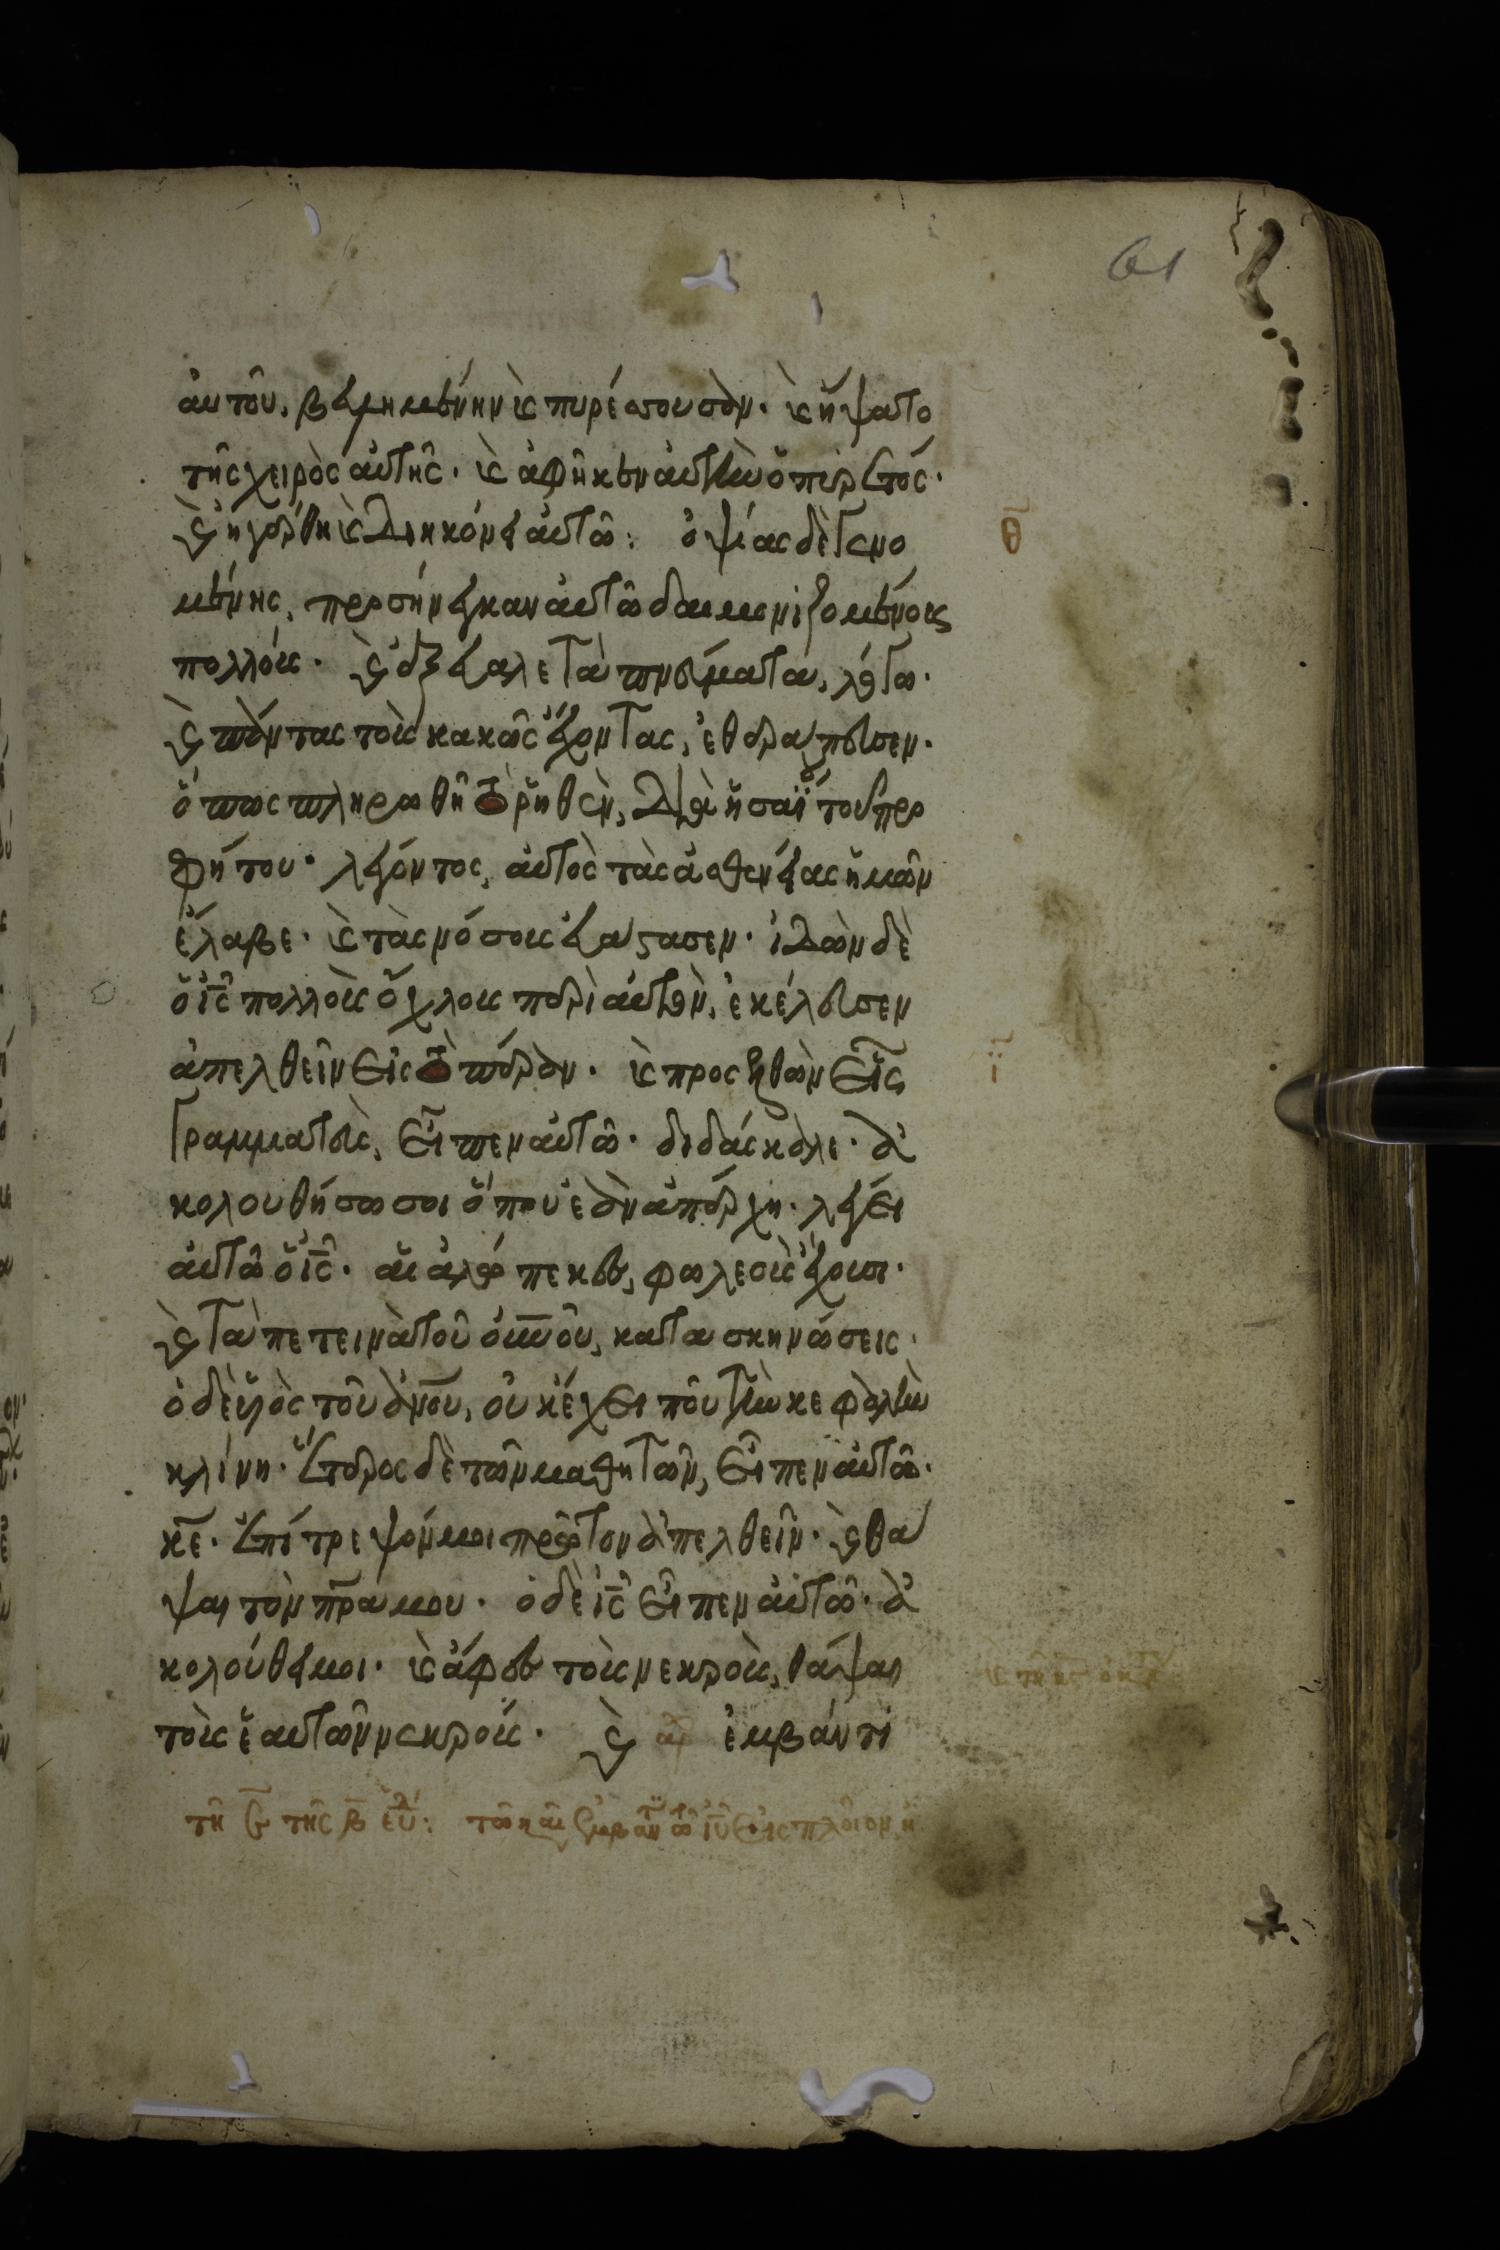 61
αὐτοῦ, βεβλημένην καὶ πυρέσσουσαν· καὶ ἥψατο
τῆς χειρὸς αὐτῆς· καὶ ἀφῆκεν αὐτὴν ὁ πυρετός·
καὶ ἠγέρθη καὶ διηκόνει αὐτῶ: ὀψίας δὲ γενο
θ
μένης, προσήνεγκαν αὐτῶ δαιμονιζομένους
πολλούς· καὶ ἐξέβαλε τὰ πνεύματα, λόγω·
καὶ πάντας τοὺς κακῶς ἔχοντας, ἐθεράπευσεν·
ὅπως πληρωθῆ τὸ ῥηθὲν, διὰ ἡσαΐου τοῦ προ
φήτου· λέγοντος, αὐτὸς τὰς ἀσθενείας ἡμῶν
ἔλαβε· καὶ τὰς νόσους ἐβάστασεν· ἰδὼν δὲ
ὁ ις πολλοὺς ὄχλους περὶ αὐτὸν, ἐκέλευσεν
ἀπελθεῖν εἰς τὸ πέραν· καὶ προσελθὼν εἷς
ϊ
γραμματεὺς, εἶπεν αὐτῶ· διδάσκαλε· ἀ
κολουθήσω σοι ὅπου ἐὰν ἀπέρχη· λέγει
αὐτῶ ὁ ις· αἱ ἀλώπεκες, φωλεοὺς ἔχουσι·
καὶ τὰ πετεινὰ τοῦ οὐνοῦ, κατασκηνώσεις·
ὁ δὲ υἱὸς τοῦ ἀνου, οὐκ ἔχει ποῦ τὴν κεφαλὴν
κλίνη· ἕτερος δὲ τῶν μαθητῶν, εἶπεν αὐτῶ·
κε· ἐπίτρεψόν μοι πρῶτον ἀπελθεῖν· καὶ θά
ψαι τὸν πρα μου· ὁ δὲ ις εἶπεν αὐτῶ· ἀ
κολούθει μοι· καὶ ἄφες τοὺς νεκροὺς, θάψαι
τοὺς ἑαυτῶν νεκρούς· καὶ αρ ἐμβάντι
τῆ ς τῆς β ευ: τῶ καιρῶ ἐμβάντι τῶ ιυ εἰς πλοῖον